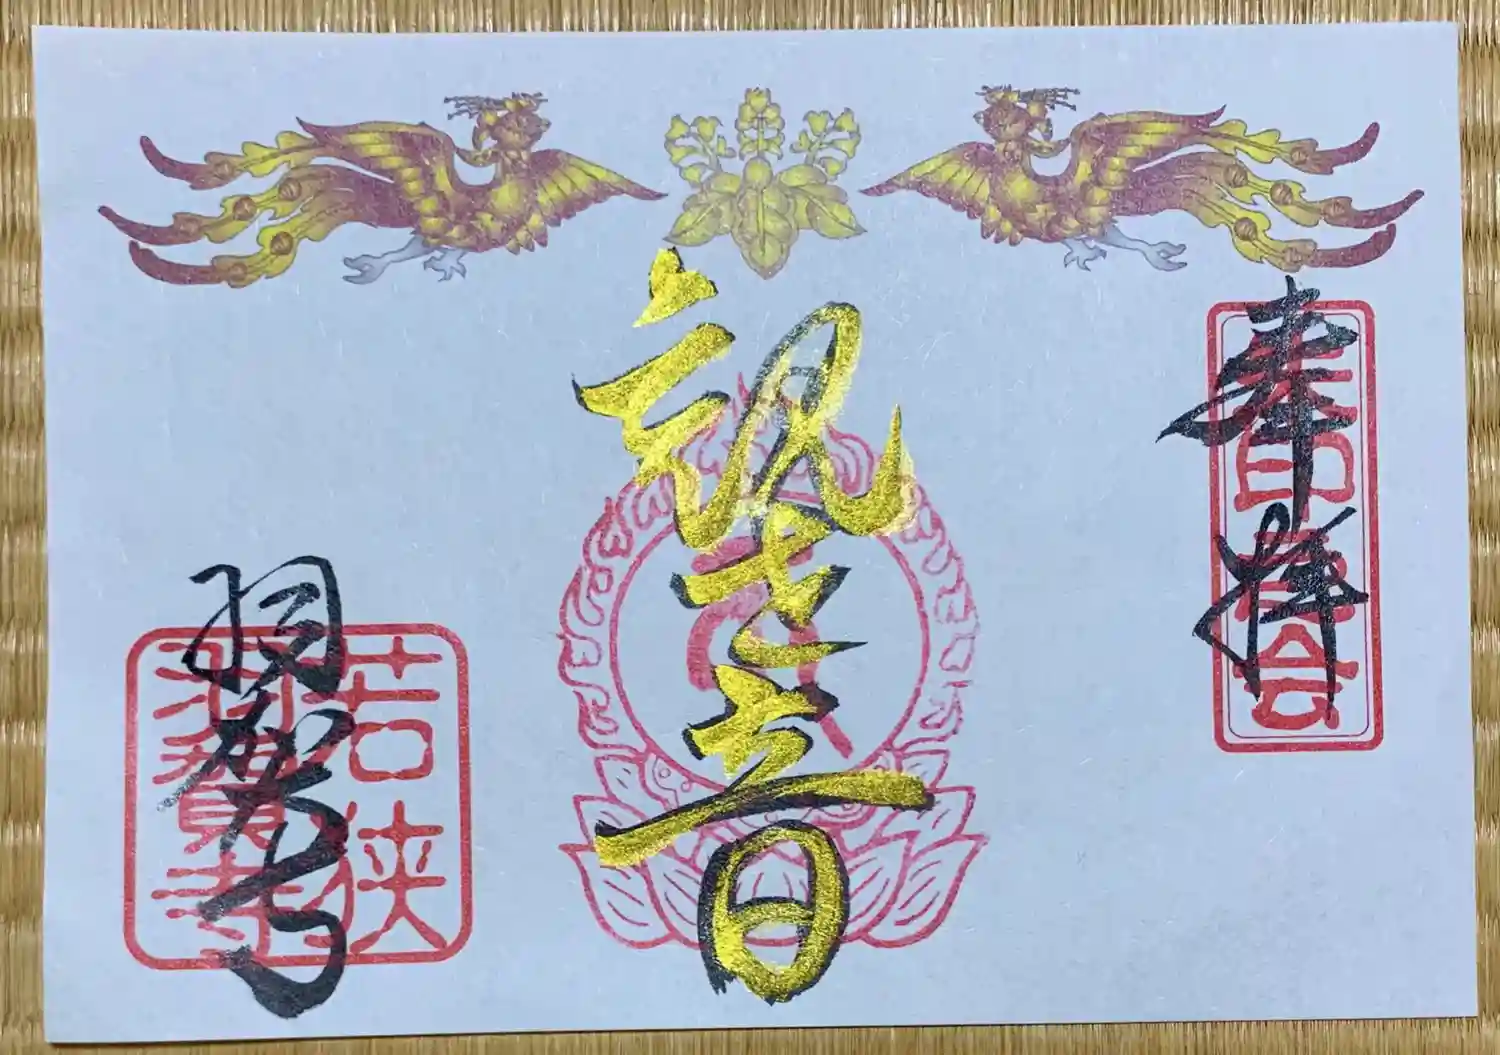 奉拝
観世音
羽賀寺
若狭
羽賀寺